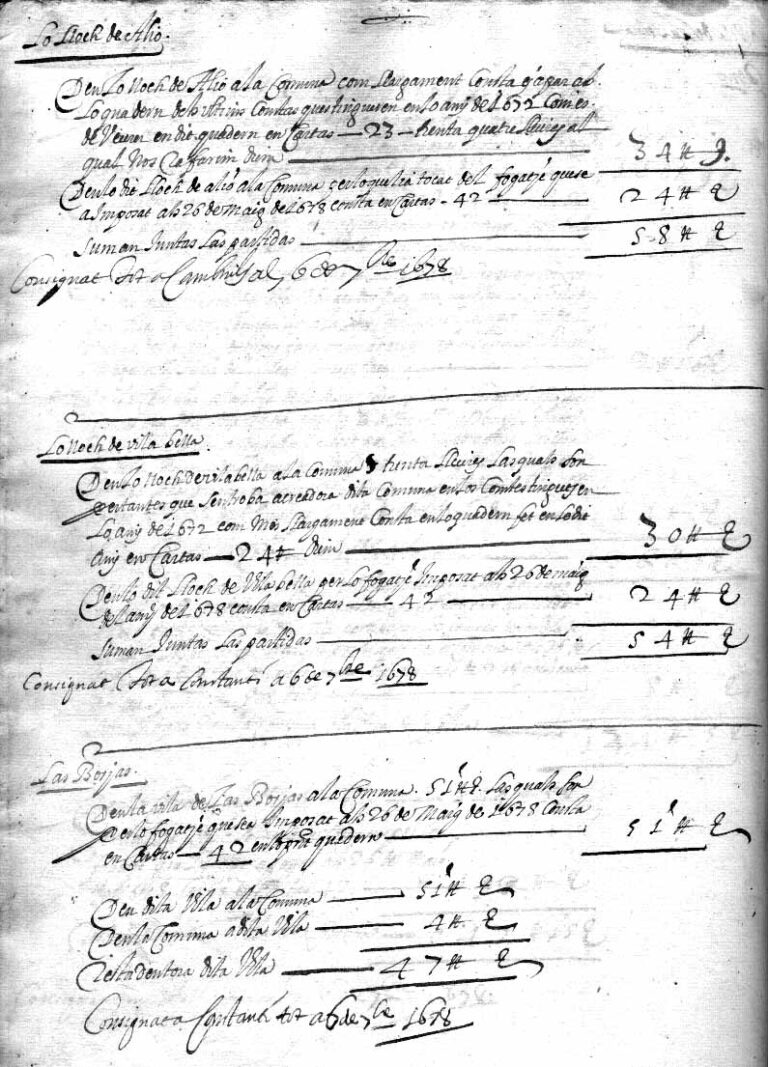 Lo Lloch de Alio.
Deu Lo lloch de Alio a la Comuna com Llargament Consta y apar ab
Lo quadern de los ultims Contes que s tingueren en lo any de 1672 Com es
de Veurer en dit quadern en Cartas — 23 — trenta quatre lliures al
qual Nos
34 ℔ ȝ.
Deu lo dit Lloch de alió a la Comuna per lo que li a tocat del fogatje que se
a Imposat als 26 de Maig de 1678 consta en Cartas - 42
24 ℔ ȝ
Suman Juntas Las partidas
58 ℔ ȝ
Consignat tot a Cambrils al 6 de 7bre 1678
Lo lloch de villa bella
Deu Lo lloch de vilabella a la Comuna trenta lliures Las quals son
per tantes que s en troba acreadora dita Comuna en los Contes tinguts en
Lo any de 1672 com Mes Llargament Consta en lo quadern fet en lo dit
any en Cartas — 24 ℔ dich
30 ℔ ȝ
Deu lo dit Lloch de Vila bella per lo fogatje Imposat als 26 de maig
del any de 1678 consta en Cartas — 42
24 ℔ ȝ
Suman Juntas Las partidas
54 ℔ ȝ
Consignat tot a Constantí a 6 de 7bre 1678
Las Borjas.
Deu la vila de Las Borjas a la Comuna. 51 ℔ ȝ. Las quals son
per lo fogatje que se a Imposat als 26 de Maig de 1678 Consta
en Cartas — 42 en lo pnt quadern
51 ℔ ȝ
Deu dita Vila a la Comuna — 51 ℔ ȝ
Deu la Comuna a dita Vila — 4 ℔ ȝ
Resta deutora dita Vila — 47 ℔ ȝ
Consignat a Constantí tot a 6 de 7bre 1678